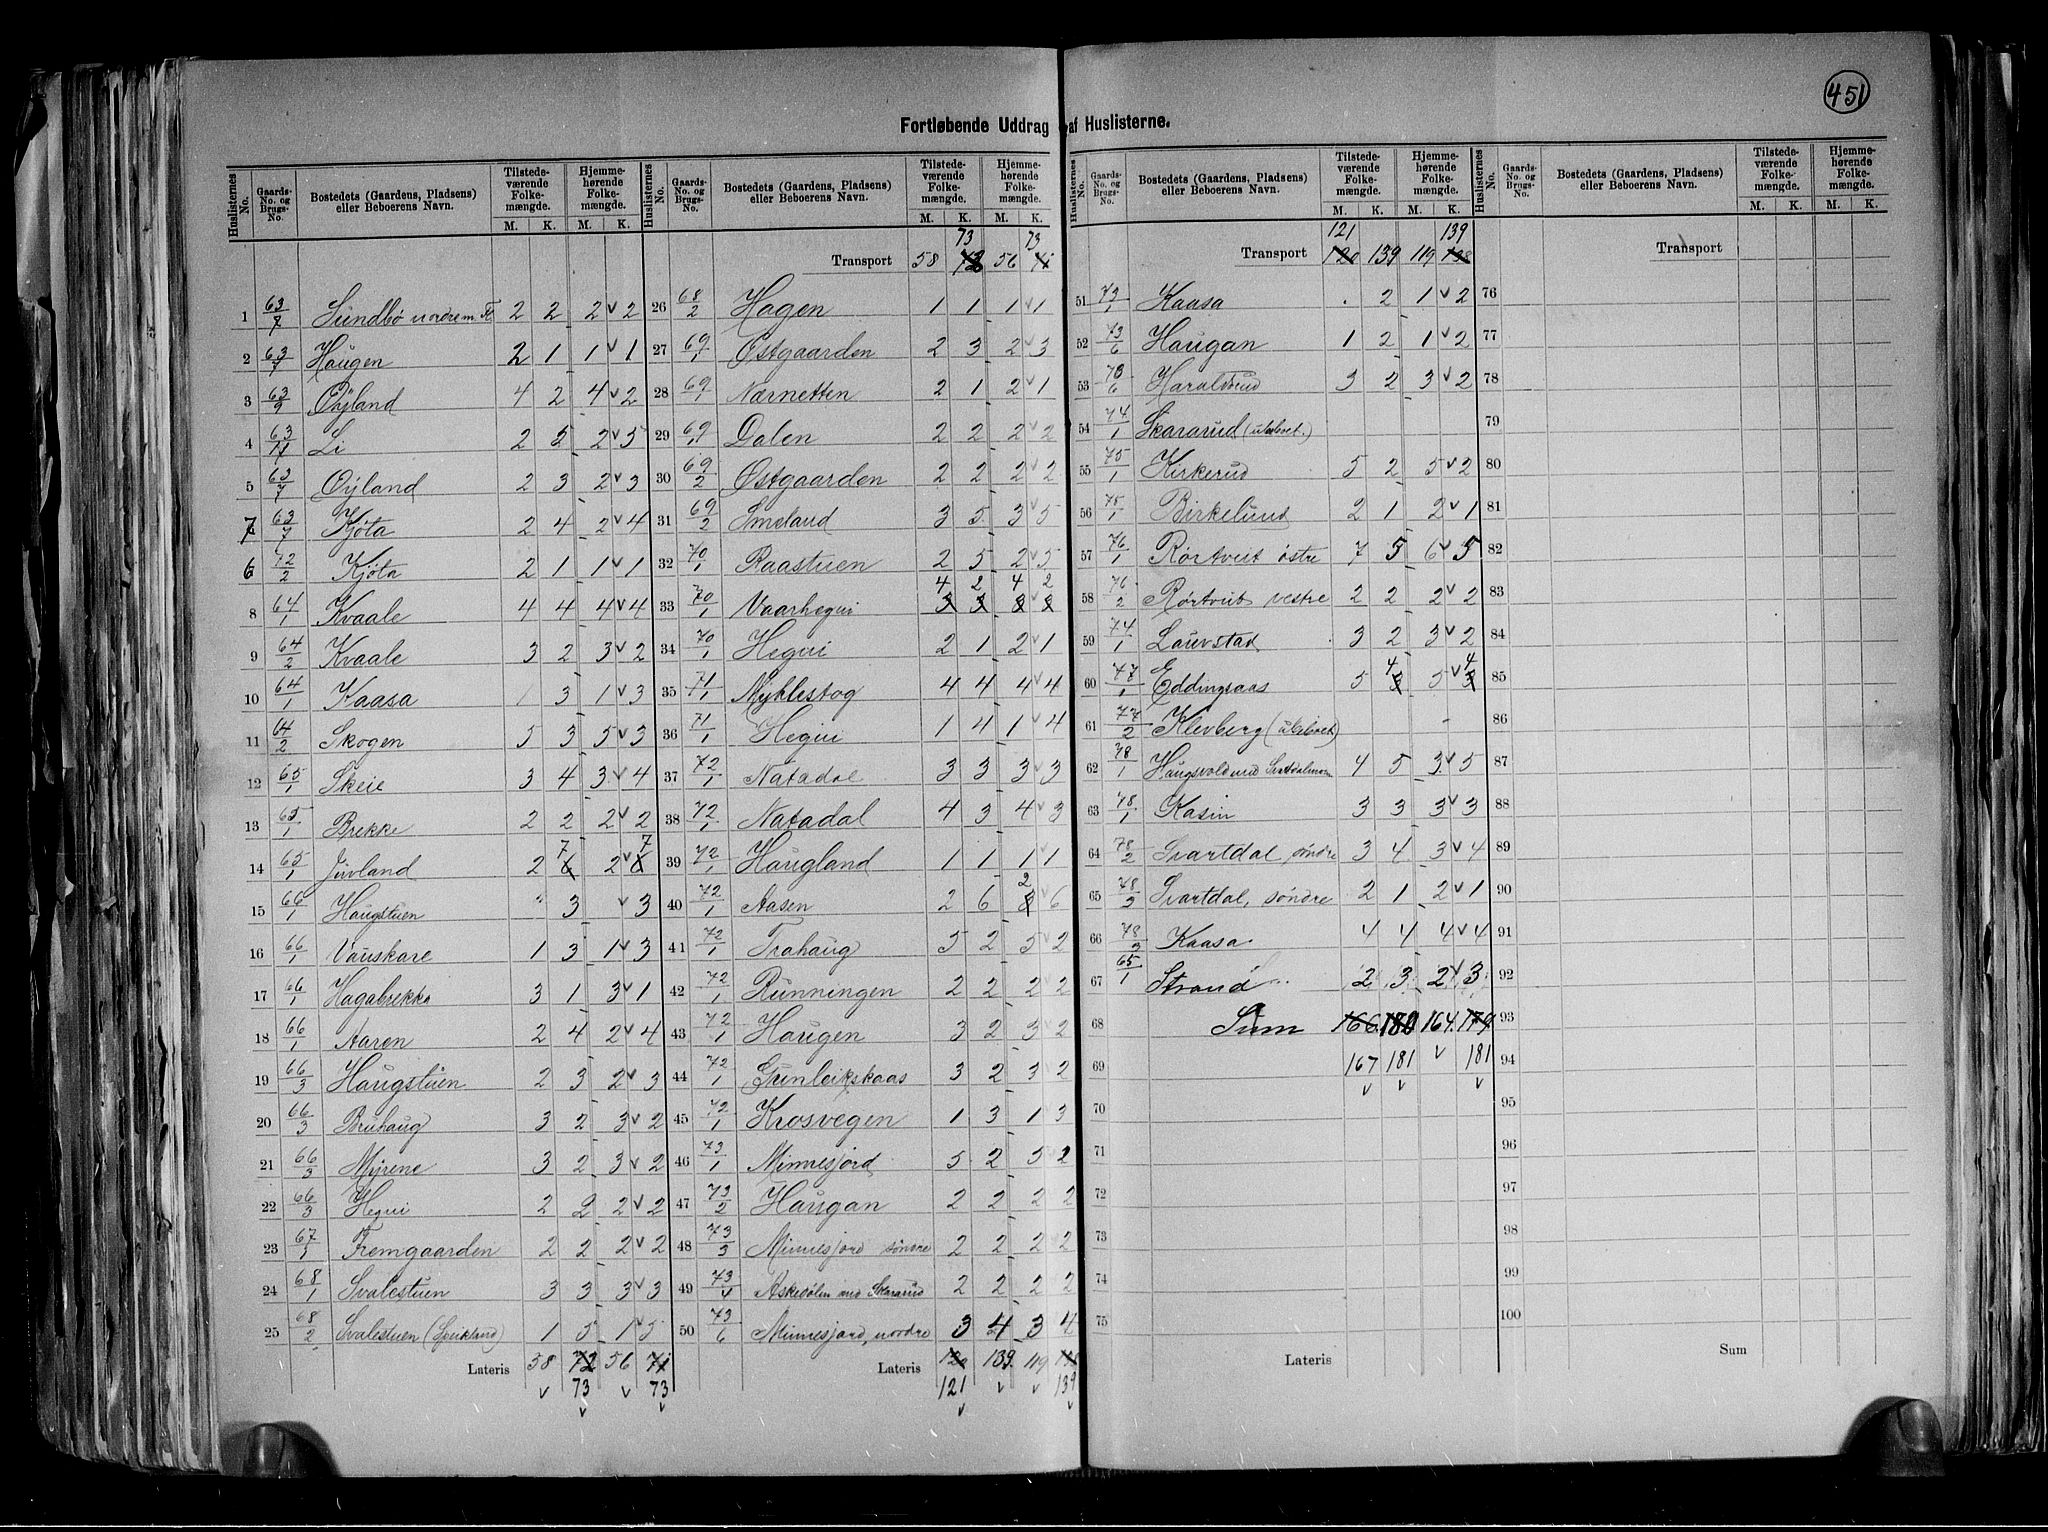 451
Fortløbende Uddrag af Huslisterne.
Huslisternes No. | Gaards-No. og Brugs-No. | Bostedets (Gaardens, Pladsens) eller Beboerens Navn. | Tilstedeværende Folkemængde. M. K. | Hjemmehørende Folkemængde. M. K.
1 63/7 Sundbø nordre 2 2 2 v 2
2 63/7 Haugen 2 1 1 v 1
3 63/9 Øyland 4 2 4 v 2
4 63/11 Li 2 5 2 v 5
5 63/7 Øyland 2 3 2 v 3
7 63/7 Kjøta 2 4 2 v 4
6 72/2 Kjøta 2 1 1 v 1
8 64/1 Kvaale 4 4 4 v 4
9 64/2 Kvaale 3 2 3 v 2
10 64/1 Kaasa 1 3 1 v 3
11 64/2 Skogen 5 3 5 v 3
12 65/1 Skeie 3 4 3 v 4
13 65/1 Brekke 2 2 2 v 2
14 65/1 Juvland 2 7 2 v 7
15 66/1 Haugstuen " 3 v 3
16 66/1 Vauskare 1 3 1 v 3
17 66/1 Hagabrekka 3 1 3 v 1
18 66/1 Aaren 2 4 2 v 4
19 66/3 Haugstuen 2 3 2 v 3
20 66/3 Bruhaug 3 2 3 v 2
21 66/3 Myrene 3 2 3 v 2
22 66/3 Hegni 2 2 2 v 2
23 67/1 Fremgaarden 2 2 2 v 2
24 68/1 Svalestuen 3 3 3 v 3
25 68/2 Svalestuen (Speikland) 1 5 1 v 5
Lateris 58 72 56 71
v 73 v 73
v v
Transport 58 72 73 56 71 73
26 68/2 Hagen 1 1 1 v 1
27 69/1 Østgaarden 2 3 2 v 3
28 69/1 Nørnetten 2 1 2 v 1
29 69/1 Dalen 2 2 2 v 2
30 69/2 Østgaarden 2 2 2 v 2
31 69/2 Smeland 3 5 3 v 5
32 70/1 Raastuen 2 5 2 v 5
33 70/1 Vaarhegni 4 2 4 v 2
34 70/1 Hegni 2 1 2 v 1
35 71/1 Myklestog 4 4 4 v 4
36 71/1 Hegni 1 4 1 v 4
37 72/1 Natadal 3 3 3 v 3
38 72/1 Natadal 4 3 4 v 3
39 72/1 Haugland 1 1 1 v 1
40 72/1 Aasen 2 6 2 v 6
41 72/1 Trahaug 5 2 5 v 2
42 72/1 Rünningen 2 2 2 v 2
43 72/1 Haugen 3 2 3 v 2
44 72/1 Gunleikskaas 3 2 3 2
45 72/1 Krosvegen 1 3 1 3
46 73/1 Minnesjord 5 2 5 2
47 73/2 Haugan 2 2 2 2
48 73/3 Minnesjord søndre 2 2 2 2
49 73/4 Askedalen med Skararud 2 2 2 2
50 73/6 Minnesjord, nordre 3 4 3 4
Lateris 120 139. 119 138
121 v v 139
v v
Transport 120 121 139 119 138 139
51 73/1 Kaasa . 2 1 v 2
52 73/6 Haugan 1 2 1 v 2
53 73/6 Haraldsrud 3 2 3 v 2
54 74/1 Skararud (ubeboet.)
55 75/1 Kirkerud 5 2 5 v 2
56 75/1 Birkelund 2 1 2 v 1
57 76/1 Rørtveit østre 7 5 6 v 5
58 76/2 Rørtveit vestre 2 2 2 v 2
59 74/1 Lauvstad 3 2 3 v 2
60 77/1 Eddingsaas 5 4 5 v 4
61 77/2 Klevberg (ubeboet) -
62 78/1 Haugsvold med Svartdalmoen 4 5 3 v 5
63 78/1 Kasin 3 3 3 v 3
64 78/2 Svartdal, søndre 3 4 3 v 4
65 78/3 Svartdal, søndre 2 1 2 v 1
66 78/3 Kaasa 4 4 4 v 4
67 65/1 Strand 2 3 2 v 3
68 Sum 166 180 164 179
69 167 181 v 181
v v v
70
71
72
73
74
75
Lateris
Transport
76
77
78
79
80
81
82
83
84
85
86
87
88
89
90
91
92
93
94
95
96
97
98
99
100
Sum